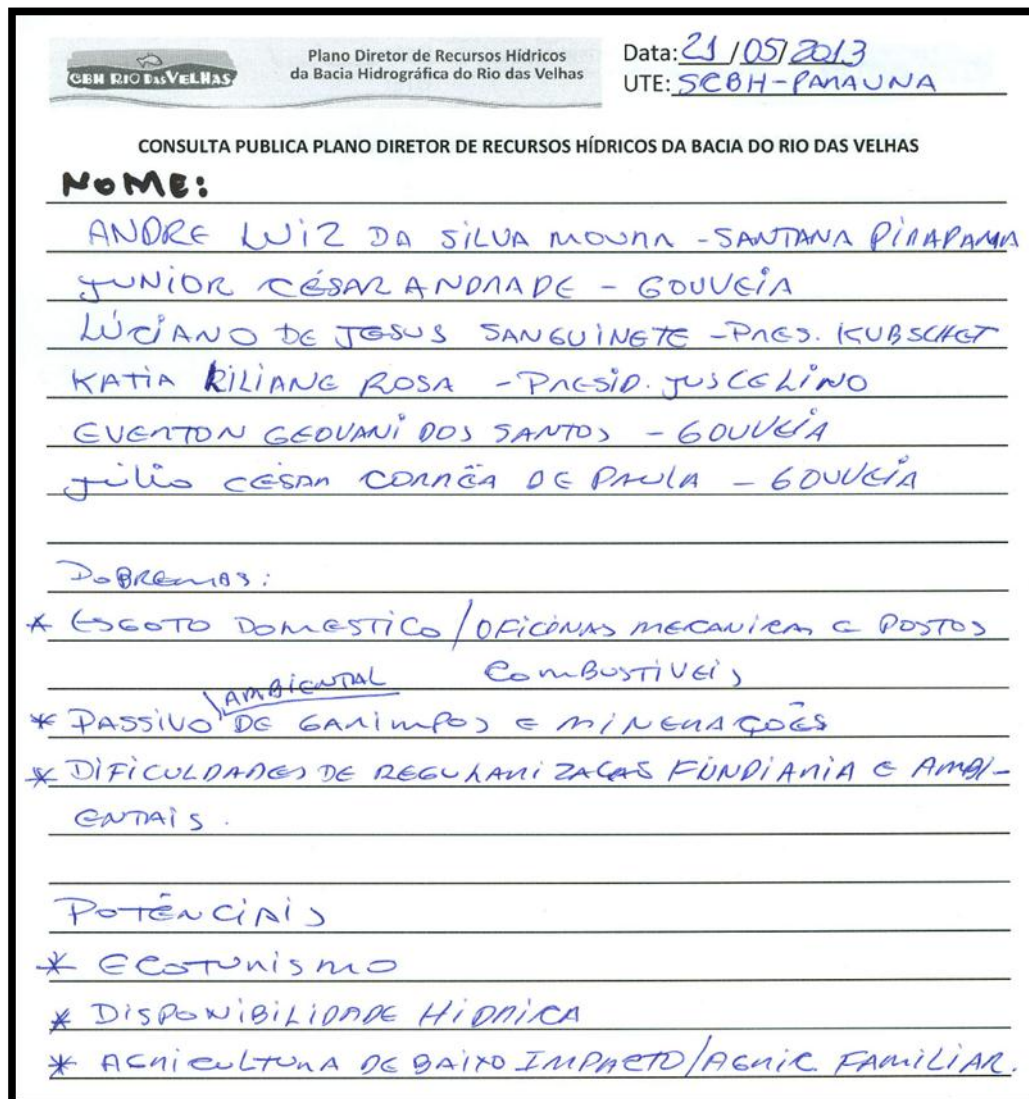 CBH RIO DAS VELHAS
Plano Diretor de Recursos Hídricos
da Bacia Hidrográfica do Rio das Velhas
Data: 21/05/2013
UTE: SCBH-PARAUNA
CONSULTA PUBLICA PLANO DIRETOR DE RECURSOS HÍDRICOS DA BACIA DO RIO DAS VELHAS
NOME:
ANDRE LUIZ DA SILVA MOURA - SANTANA PIRAPAMA
JUNIOR CÉSAR ANDRADE - GOUVEIA
LÚCIANO DE JESUS SANGUINETE - PRES. KUBSCHET
KATIA RILIANE ROSA - PRESID. JUSCELINO
EVERTON GEOVANI DOS SANTOS - GOUVEIA
Júlio CÉSAR CORRÊA DE PAULA - GOUVEIA
* ESGOTO DOMESTICO / OFICINAS MECANICAS E POSTOS
COMBUSTÍVEIS
AMBIENTAL
* PASSIVO DE GARIMPOS E MINERAÇÕES
* DIFICULDADES DE REGULARIZACAS FUNDIARIA E AMBI-
ENTAIS.
POTÊNCIAIS
* ECOTURISMO
* DISPONIBILIDADE HIDRICA
* AGRICULTURA DE BAIXO IMPACTO/AGRIC FAMILIAR.